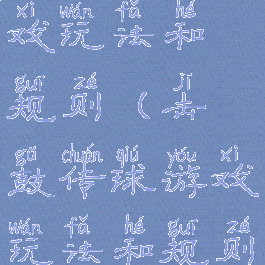 xì wán fǎ hé
戏玩法和
guī zé jī
规则(击
gǔ chuán qiú yóu xì
鼓传球游戏
wán fǎ hé guī zé
玩法和规则